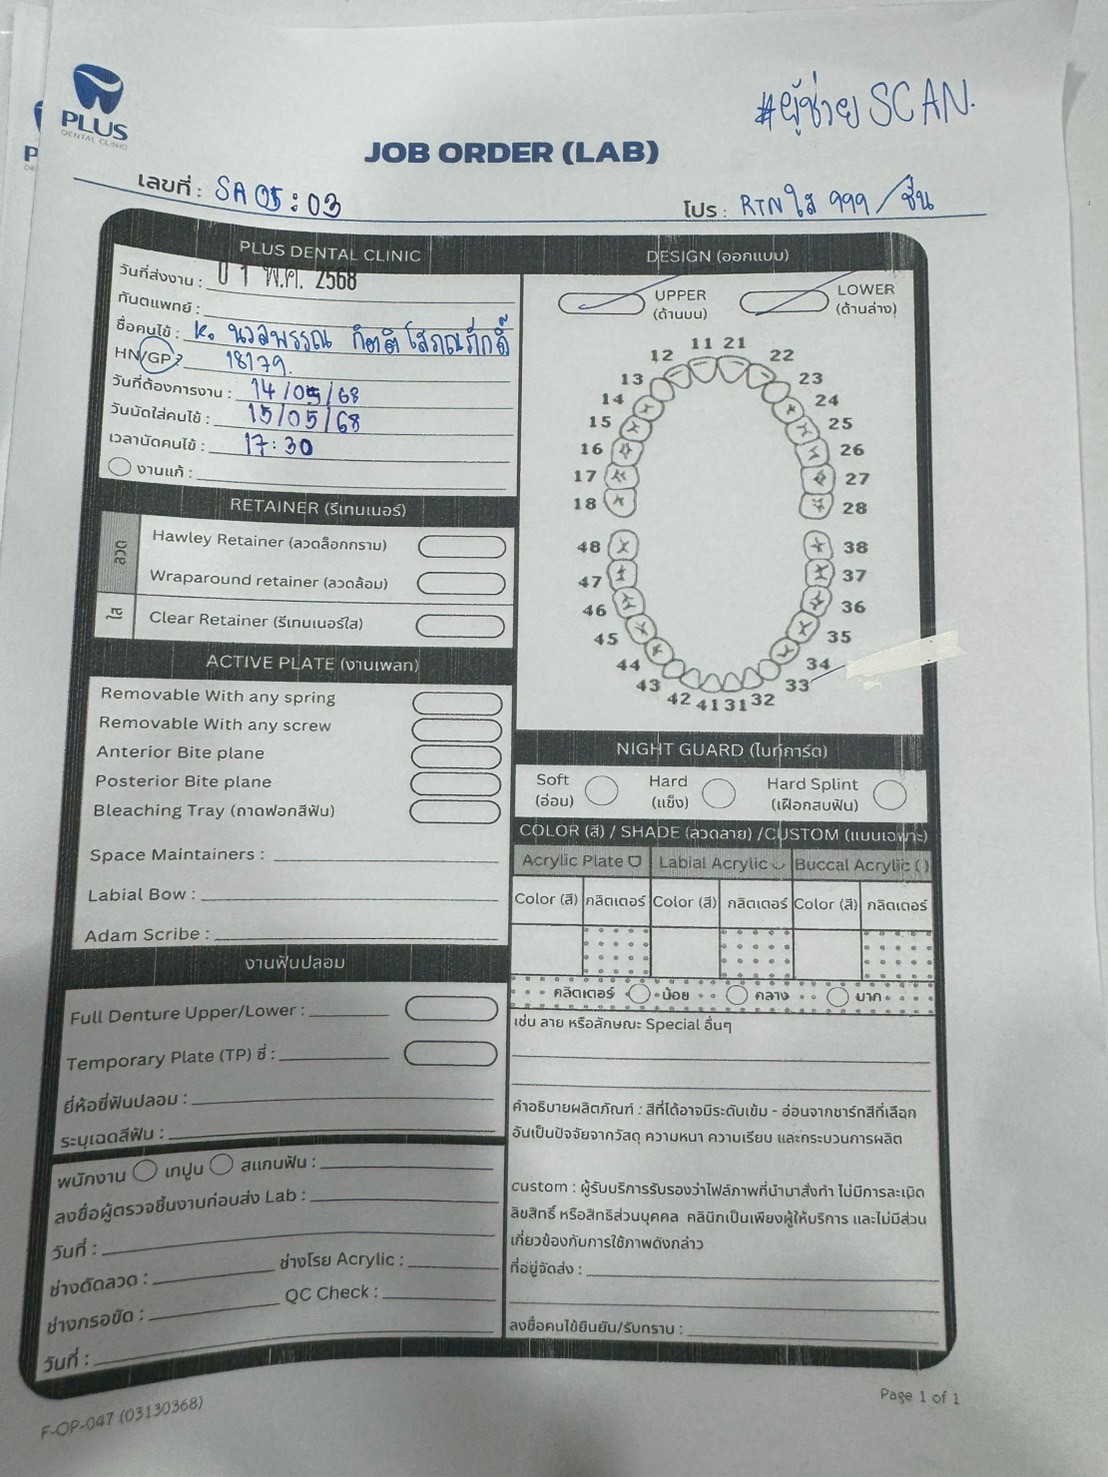 PLUS
DENTAL CLINIC
#ผู้ช่วย SCAN.
JOB ORDER (LAB)
เลขที่ : SA 05 : 03
โปร : RTN ใส 999 / ชิ้น
PLUS DENTAL CLINIC
วันที่ส่งงาน : 0 1 พ.ค. 2568
ทันตแพทย์ :
ชื่อคนไข้ : K. นวลพรรณ กิตติโสภณภักดิ์
HN/GP : 18179.
วันที่ต้องการงาน : 14/05/68
วันนัดใส่คนไข้ : 15/05/68
เวลานัดคนไข้ : 17:30
งานแก้ :
RETAINER (รีเทนเนอร์)
ลวด
Hawley Retainer (ลวดล็อกกราม)
Wraparound retainer (ลวดล้อม)
ใส
Clear Retainer (รีเทนเนอร์ใส)
ACTIVE PLATE (งานเพลท)
Removable With any spring
Removable With any screw
Anterior Bite plane
Posterior Bite plane
Bleaching Tray (ถาดฟอกสีฟัน)
Space Maintainers :
Labial Bow :
Adam Scribe :
งานฟันปลอม
Full Denture Upper/Lower :
Temporary Plate (TP) ซี่ :
ยี่ห้อซี่ฟันปลอม :
ระบุเฉดสีฟัน :
พนักงาน เทปูน สแกนฟัน :
ลงชื่อผู้ตรวจชิ้นงานก่อนส่ง Lab :
วันที่ :
ช่างดัดลวด :
ช่างโรย Acrylic :
ช่างกรอขัด :
QC Check :
วันที่ :
F-OP-047 (03130368)
DESIGN (ออกแบบ)
UPPER
(ด้านบน)
LOWER
(ด้านล่าง)
11 21
12 22
13 23
14 24
15 25
16 26
17 27
18 28
48 38
47 37
46 36
45 35
44 34
43 33
42 41 31 32
NIGHT GUARD (ไนท์การ์ด)
Soft
(อ่อน)
Hard
(แข็ง)
Hard Splint
(เฝือกสบฟัน)
COLOR (สี) / SHADE (ลวดลาย) /CUSTOM (แบบเฉพาะ)
Acrylic Plate
Labial Acrylic
Buccal Acrylic ( )
Color (สี) กลิตเตอร์ Color (สี) กลิตเตอร์ Color (สี) กลิตเตอร์
กลิตเตอร์ น้อย กลาง มาก
เช่น ลาย หรือลักษณะ Special อื่นๆ
คำอธิบายผลิตภัณฑ์ : สีที่ได้อาจมีระดับเข้ม - อ่อนจากชาร์กสีที่เลือก
อันเป็นปัจจัยจากวัสดุ ความหนา ความเรียบ และกระบวนการผลิต
custom : ผู้รับบริการรับรองว่าไฟล์ภาพที่นำมาสั่งทำ ไม่มีการละเมิด
ลิขสิทธิ์ หรือสิทธิส่วนบุคคล คลินิกเป็นเพียงผู้ให้บริการ และไม่มีส่วน
เกี่ยวข้องกับการใช้ภาพดังกล่าว
ที่อยู่จัดส่ง :
ลงชื่อคนไข้ยืนยัน/รับทราบ :
Page 1 of 1